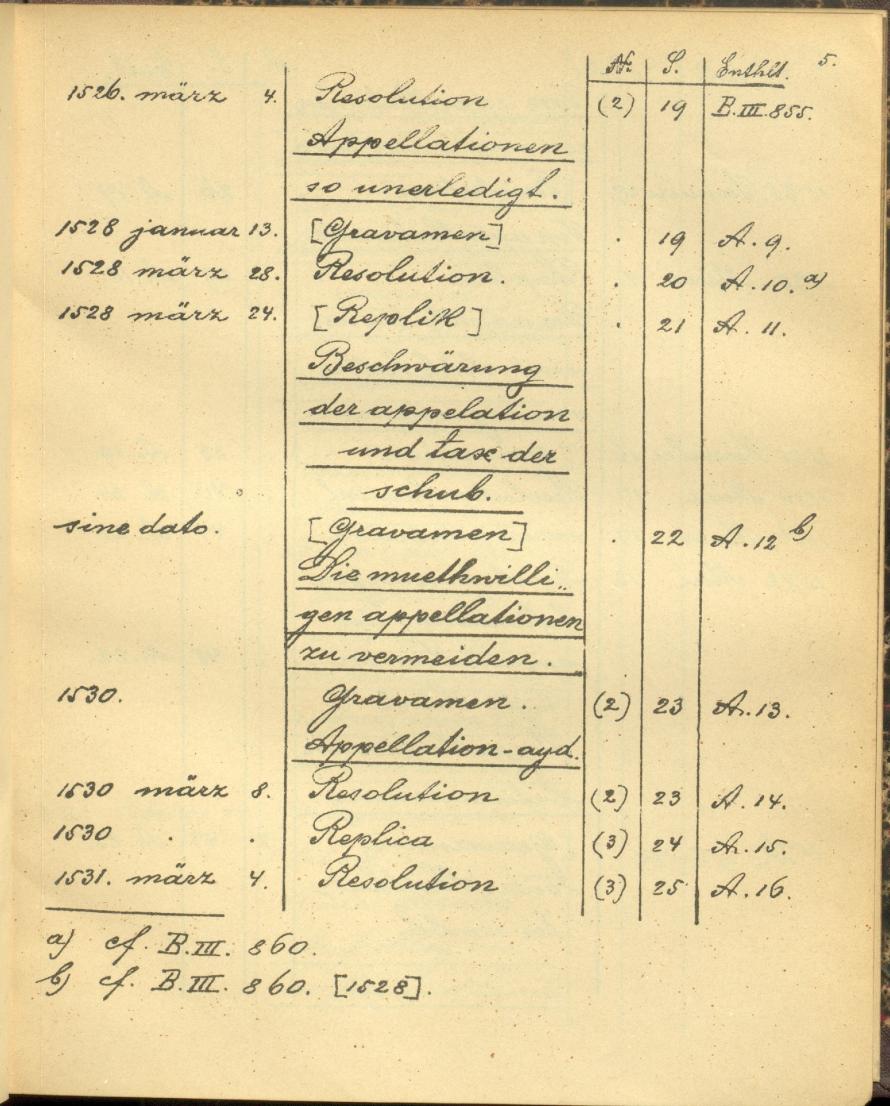 Nr. S. Enthlt. 5.
1526. märz 4. Resolution (2) 19 B.III.855.
Appellationen
so unerledigt.
1528 januar 13. [Gravamen] . 19 A. 9.
1528 märz 28. Resolution. . 20 A. 10. a)
1528 märz 24. [Replik] . 21 A. 11.
Beschwärung
der appelation
und tax der
schub.
sine dato. [Gravamen] . 22 A. 12 b)
Die muethwilli„
gen appellationen
zu vermeiden.
1530. Gravamen. (2) 23 A. 13.
Appellation-ayd.
1530 märz 8. Resolution (2) 23 A. 14.
1530 . . Replica (3) 24 A. 15.
1531. märz 4. Resolution (3) 25 A. 16.
a) cf. B.III. 860.
b) cf. B.III. 860. [1528].